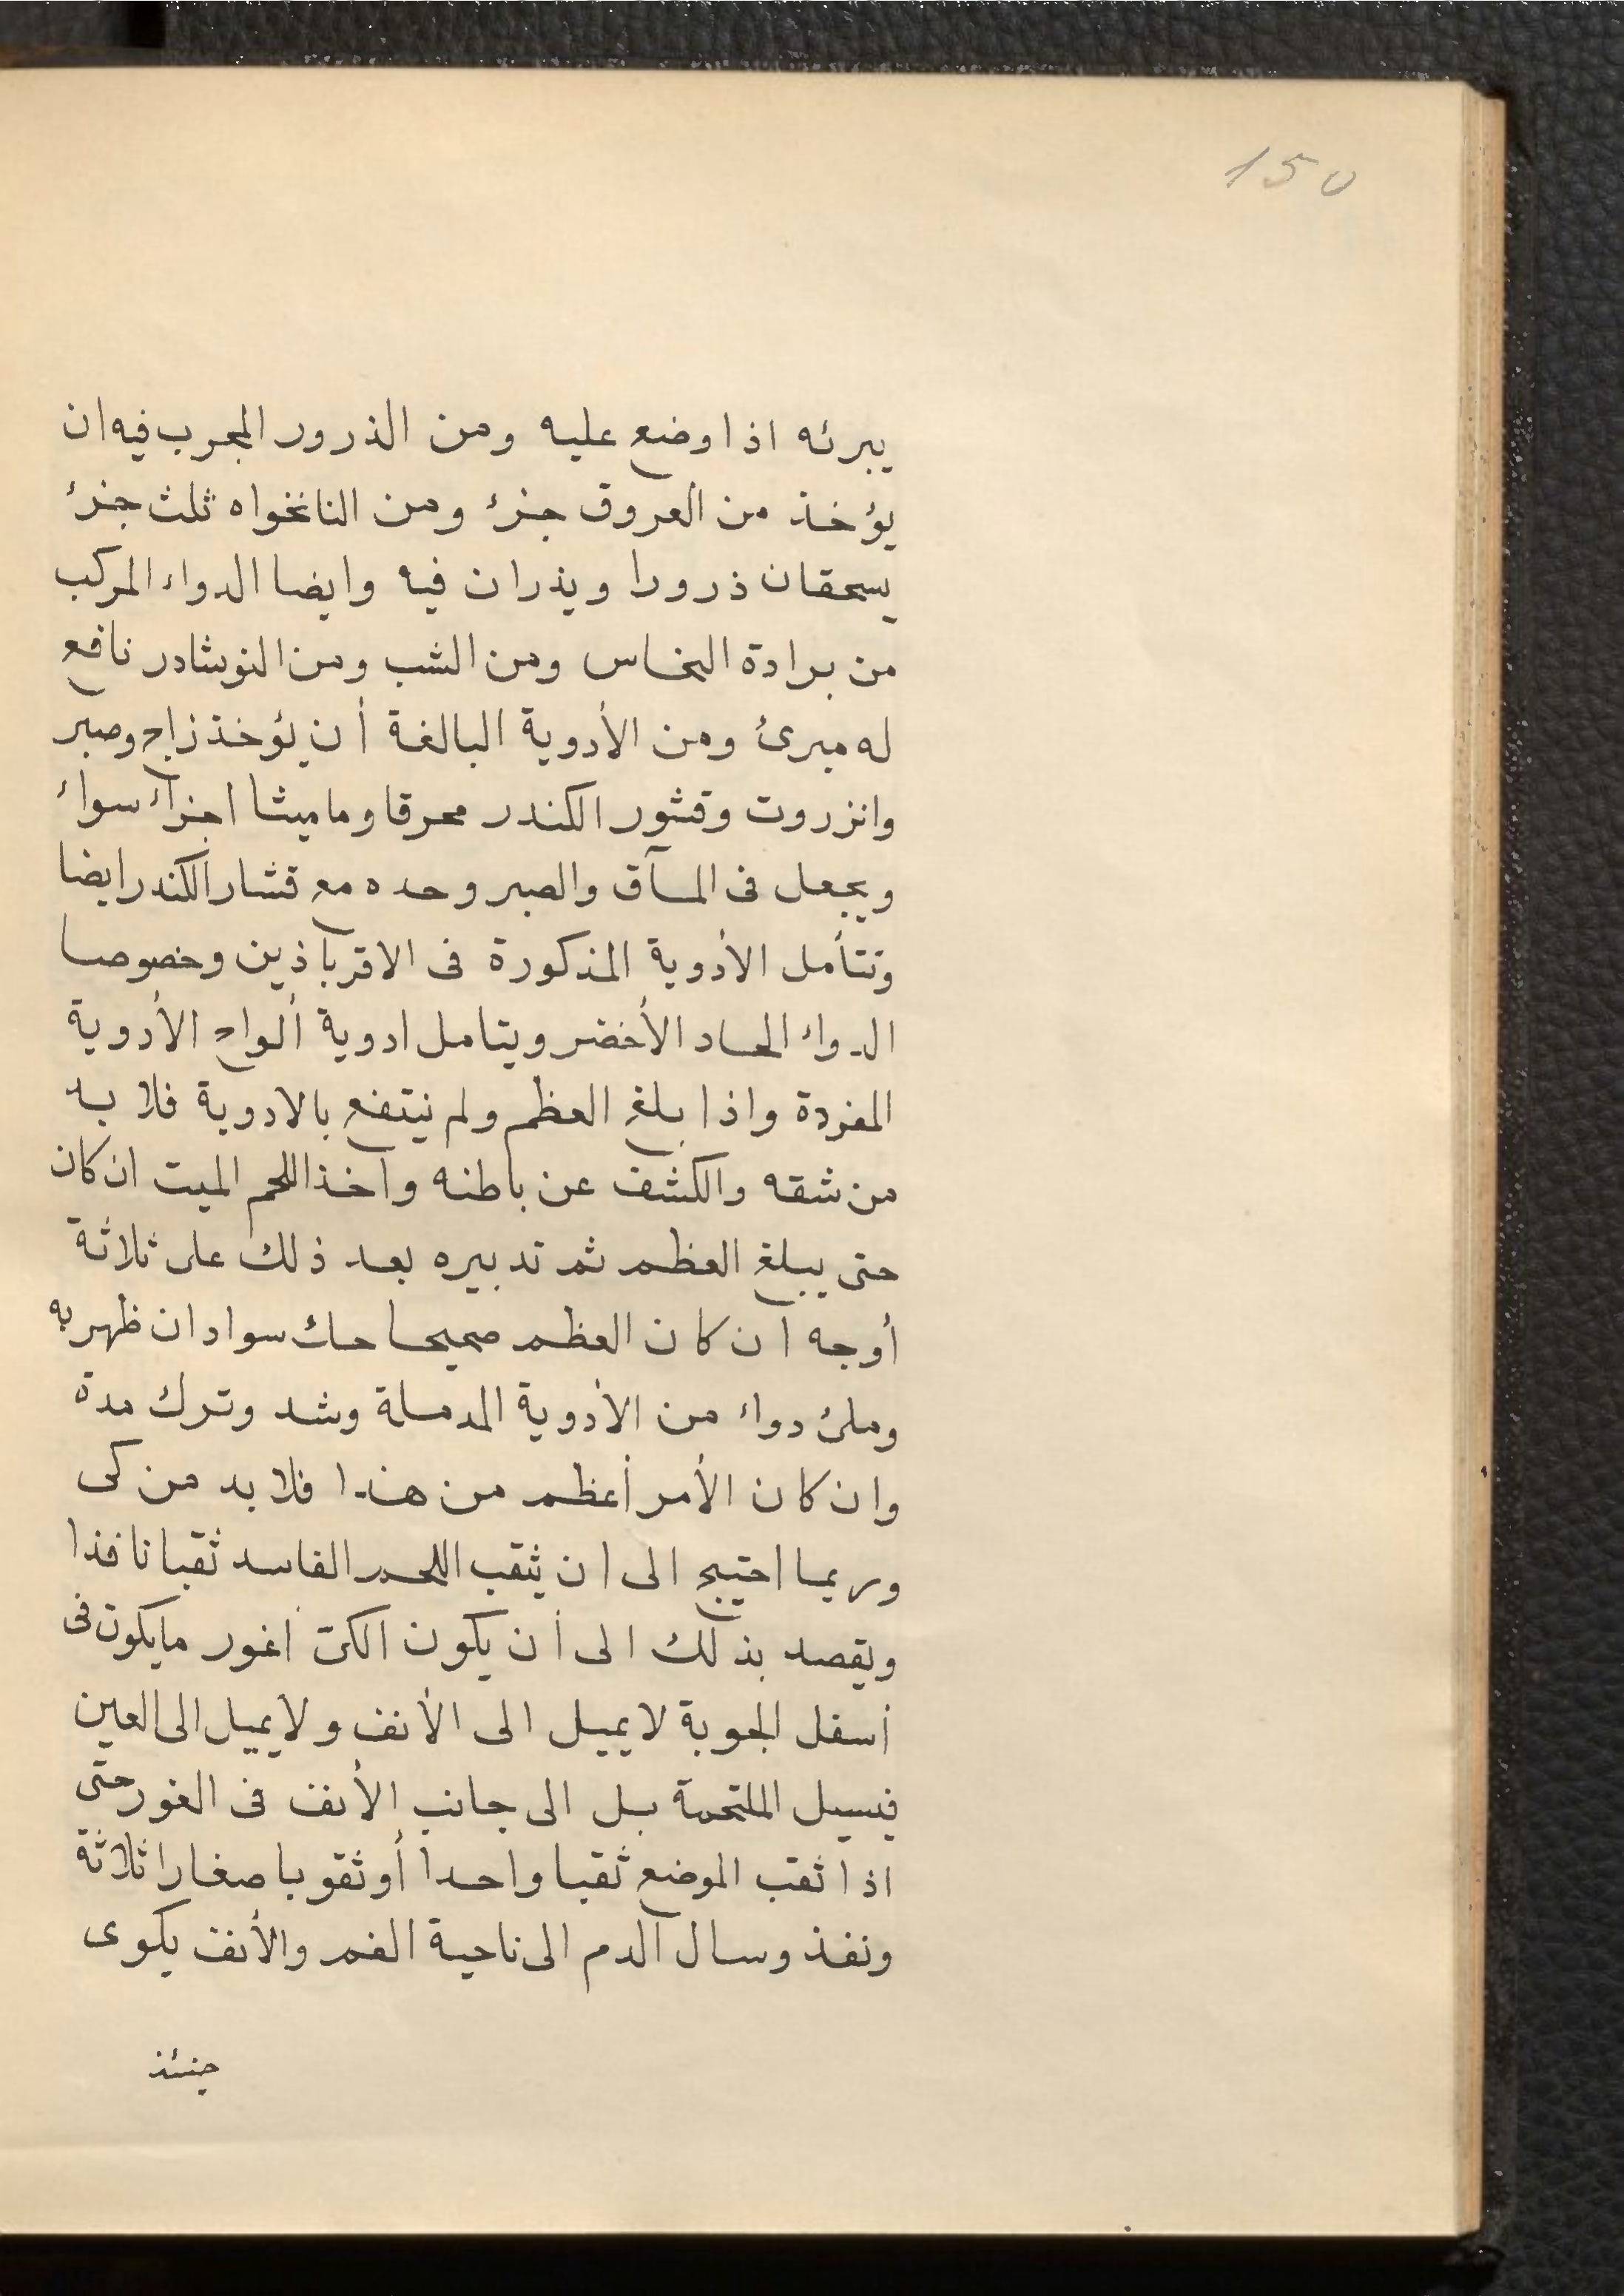 150
يبرئه اذا وضع عليه ومن الذرور المجرب فيه ان
يؤخذ من العروق جزئ ومن النانخواه ثلث جزئ
يسحقان ذرورا ويذران فيه وايضا الدواء المركب
من برادة النحاس ومن الشب ومن النوشادر نافع
له مبرئ ومن الأدوية البالغة أن يؤخذ زاج وصبر
وانزروت وقشور الكندر محرقا وماميثا اجزاء سواء
ويجعل فى المآق والصبر وحده مع قشار الكندر ايضا
وتتأمل الأدوية المذكورة فى الاقرباذين وخصوصا
الدواء الحاد الأخضر ويتامل ادوية ألواح الأدوية
المفردة واذا بلغ العظم ولم ينتفع بالادوية فلا بد
من شقه والكشف عن باطنه واخذ اللحم الميت ان كان
حتى يبلغ العظم ثم تدبيره بعد ذلك على ثلاثة
أوجه ان كان العظم صحيحا حك سواد ان ظهر به
وملئ دواء من الأدوية المدملة وشد وترك مدة
وان كان الأمر أعظم من هذا فلا بد من كى
وربما احتيج الى ان يثقب اللحم الفاسد ثقبا نافذا
ويقصد بذلك الى أن يكون الكىّ أغور مايكون فى
أسفل الجوبة لا يميل الى الأنف ولا يميل الى العين
فيسيل الملتحمة بل الى جانب الأنف فى الغور حتى
اذا ثقب الموضع ثقبا واحدا أو ثقوبا صغارا ثلاثة
ونفذ وسال الدم الى ناحية الفم والأنف يكوى
حينئذ